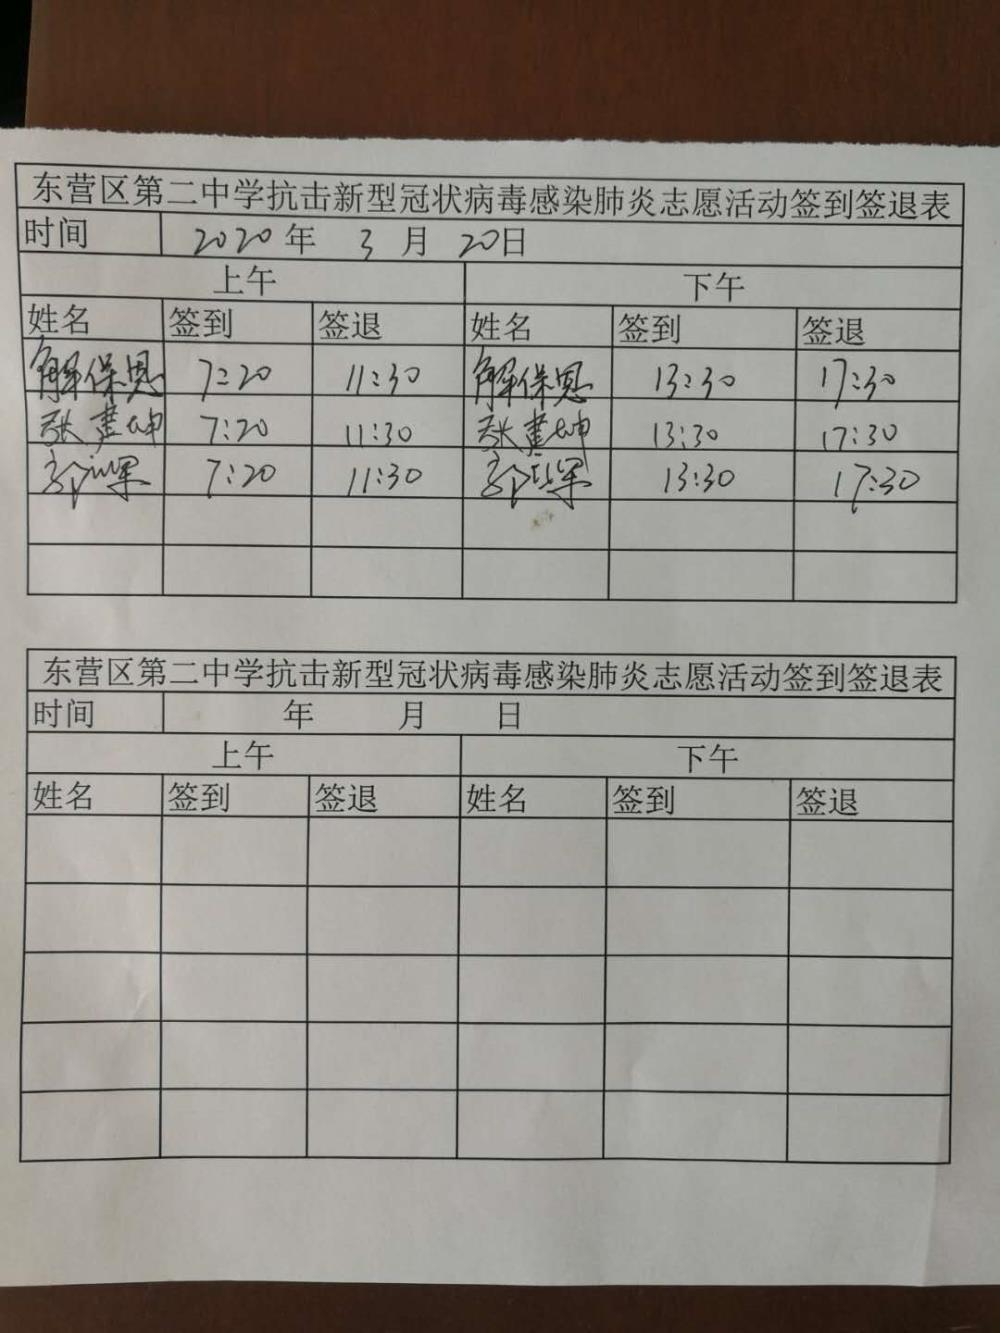 东营区第二中学抗击新型冠状病毒感染肺炎志愿活动签到签退表
时间 2020 年 3 月 20日
上午 下午
姓名 签到 签退 姓名 签到 签退
解保恩 7:20 11:30 解保恩 13:30 17:30
张建坤 7:20 11:30 张建坤 13:30 17:30
郭 军 7:20 11:30 郭 军 13:30 17:30
东营区第二中学抗击新型冠状病毒感染肺炎志愿活动签到签退表
时间 年 月 日
上午 下午
姓名 签到 签退 姓名 签到 签退